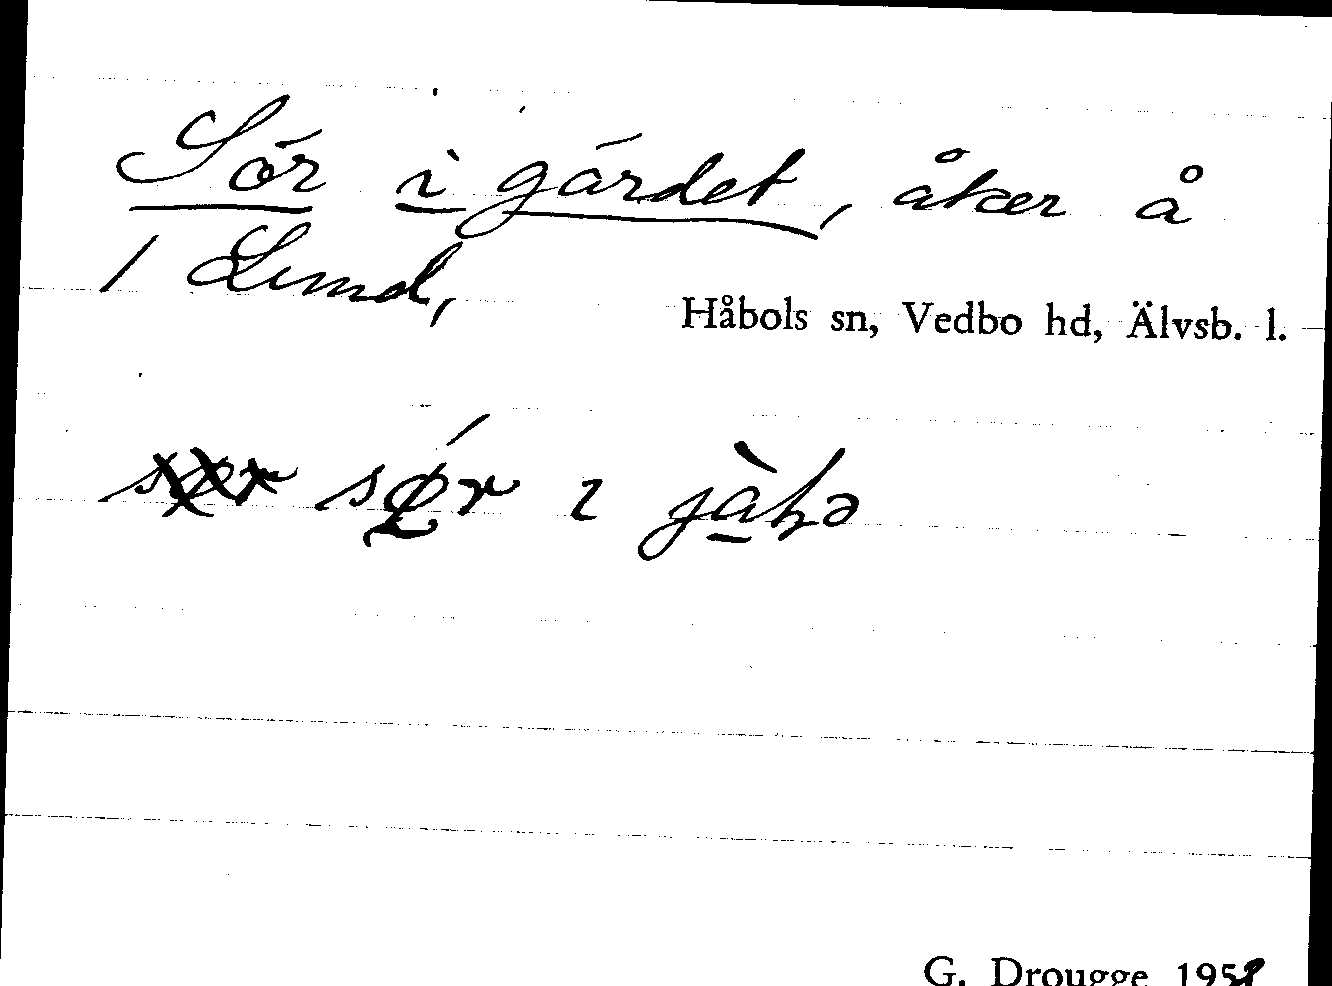 Sör i gärdet, åker å
1 Lund,
Håbols sn, Vedbo hd, Älvsb. l.
sør ı jàḥə
G. Drougge 195